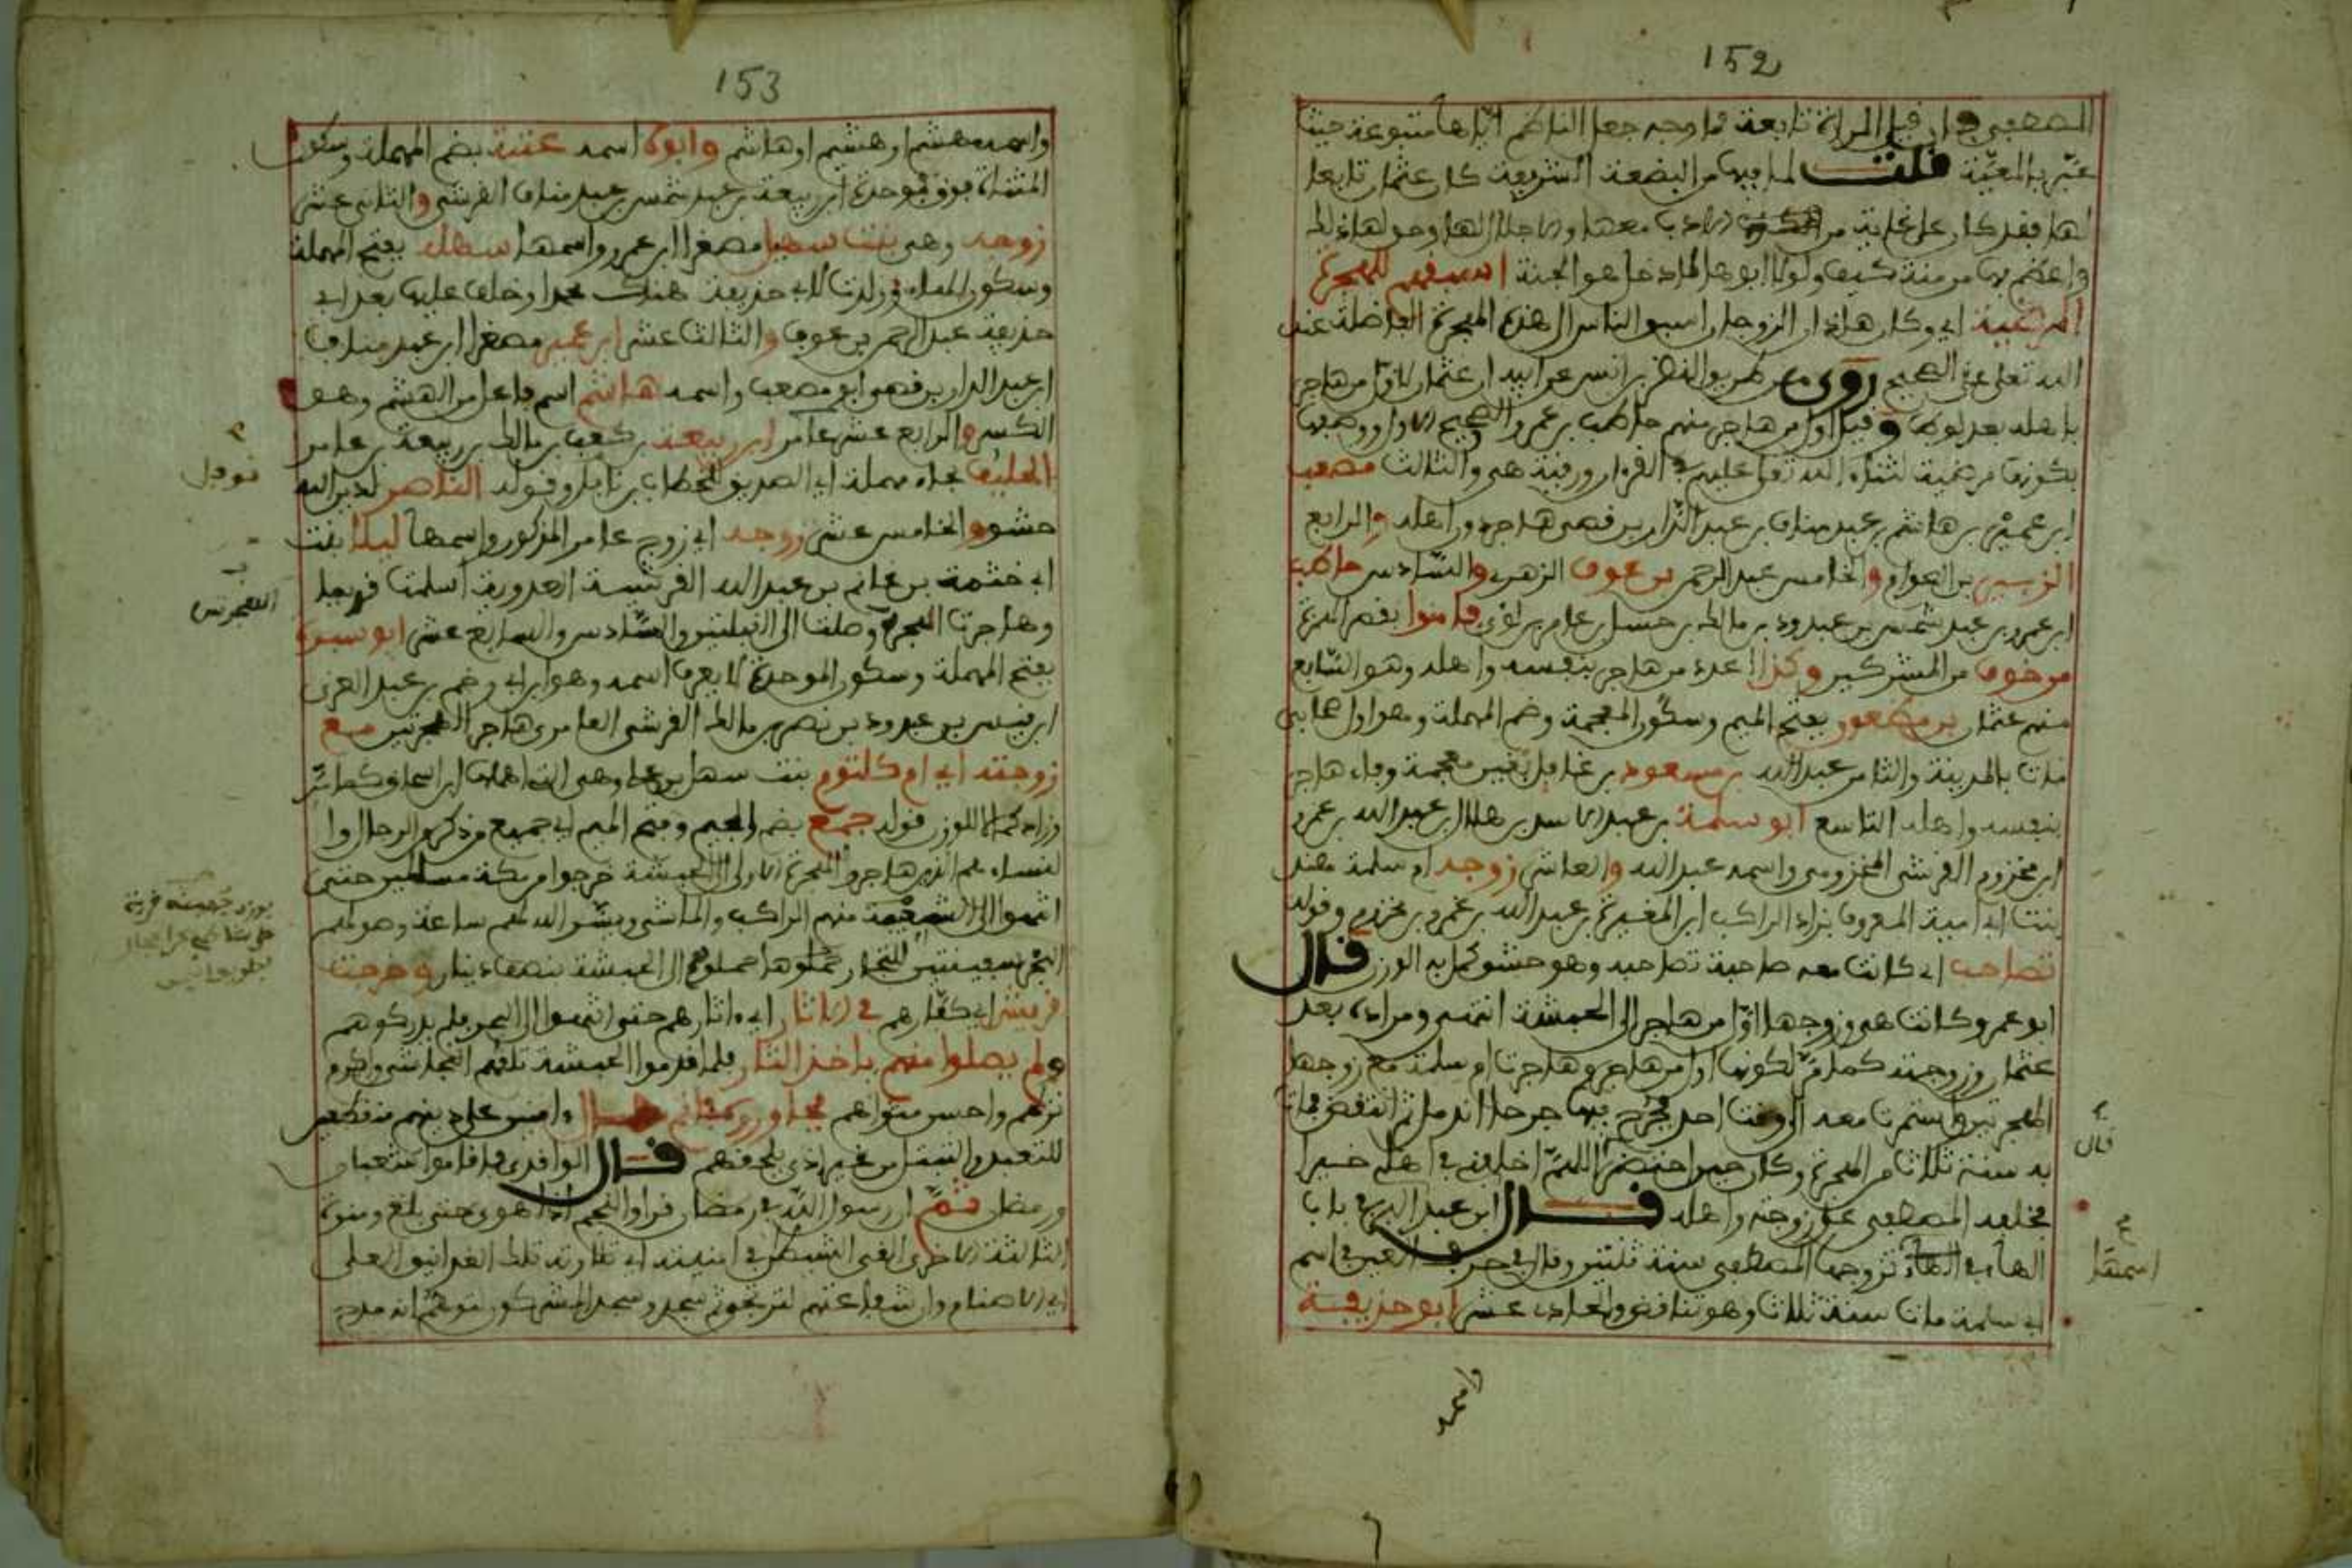 152
المصطفى فإن قيل المرأة تابعة فما وجه جعل الناظم إياها متبوعة حيث
عبر بالمعية قلت لما فيها من البضعة الشريفة كان عثمان تابعا
لها فقد كان على غاية من الأدب معها والإجلال لها وحق لها ذلك
وأعظم بها من منة كيف ولولا أبوها لما دخل هو الجنة أسبقهم للهجرة
المرضية أي وكان هاذان الزوجان أسبق الناس إلى هذه الهجرة الفاضلة عند
الله تعلى على الصحيح روي من طريق النضر بن أنس عن أبيه أن عثمان لأول من هاجر
بأهله بعد لوط وقيل أول من هاجر منهم حاطب بن عمرو والصحيح الأول ووصفها
بكونها مرضية لثناء الله تعلى عليهم في القرءان ورقية هي والثالث مصعب
ابن عمير بن هاشم بن عبد مناف بن عبد الدار بن قصي هاجر دون أهله والرابع
الزبير بن العوام والخامس عبد الرحمن بن عوف الزهري والسادس حاطب
ابن عمرو بن عبد شمس بن عبدود بن مالك بن حسل بن عامر بن لؤي فأمنوا بقصر المدة
من خوف من المشركين وكذا عدة من هاجر بنفسه وأهله وهو السابع
منهم عثمان بن مظعون بفتح الميم وسكون المعجمة وضم المهملة وهو أول صحابي
مات بالمدينة والثامن عبد الله بن مسعود بن غافل بغين معجمة وفاء هاجر
بنفسه وأهله التاسع أبو سلمة بن عبد الأسد بن هلال بن عبد الله بن عمر
ابن مخزوم القرشي المخزومي واسمه عبد الله والعاشر زوجه أم سلمة هند
بنت أبي أمية المعروف بزاد الراكب ابن المغيرة بن عبد الله بن عمر بن مخزوم وقوله
تصاحب أي كانت معه صاحبة تصاحبه وهو حشو كمل به الوزن قال
أبو عمر وكانت هي وزوجها أول من هاجر إلى الحبشة انتهى ومراده بعد
عثمان وزوجته كما مر لكونهما أول من هاجر وهاجرت أم سلمة مع زوجها
الهجرتين واستمرت معه إلى وقت أحد فجرح فيها جرحا اندمل ثم انتقض فمات
به سنة ثلاث من الهجرة وكان حين احتضر اللهم اخلفني في أهلي خيرا
فخلفه المصطفى على زوجته وأهله قال ابن عبد البر في باب
الهاء تزوجها المصطفى سنة ثنتين وقال في حرف العين في اسم
أبي سلمة مات سنة ثلاث وهو تناقض والحادي عشر أبو حذيفة
قال
اسمها
153
واسمه مهشم أو هشيم أو هاشم وأبوه اسمه عتبة بضم المهملة وسكون
المثناة فوق فموحدة ابن ربيعة بن عبد شمس بن عبد مناف القرشي والثاني عشر
زوجه وهي بنت سهيل مصغرا ابن عمرو واسمها سهلة بفتح المهملة
وسكون الهاء وولدت لأبي حذيفة هناك محمدا وخلف عليها بعد أبي
حذيفة عبد الرحمن بن عوف والثالث عشر ابن عمير مصغرا ابن عبد مناف
ابن عبد الدار بن قصي أبو مصعب واسمه هاشم اسم فاعل من الهشم وهو
الكسر والرابع عشر عامر ابن ربيعة بن كعب بن مالك بن ربيعة بن عامر
الحليف بحاء مهملة أي الصديق للخطاب بن نفيل وقوله الناصر لدين الله
حشو والخامس عشر زوجه أي زوج عامر المذكور واسمها ليلا بنت
أبي خثمة بن غانم بن عبد الله القرشية العدوية أسلمت قديما
وهاجرت الهجرتين وصلت إلى القبلتين والسادس والسابع عشر أبو سبرة
بفتح المهملة وسكون الموحدة لا يعرف اسمه وهو ابن أبي رهم بن عبد العزى
ابن قيس بن عبدود بن نصر بن مالك القرشي العامري هاجر الهجرتين مع
زوجته أي أم كلثوم بنت سهل بن عمرو وهي التي أهملها ابن إسحاق كما مر
وزاد كمالا للوزن قوله جمع بضم الجيم وفتح الميم أي جميع من ذكر من الرجال وا
لنساء هم الذين هاجروا الهجرة الأولى إلى الحبشة خرجوا من مكة متسللين حتى
انتهوا إلى الشعيبة منهم الراكب والماشي ويسر الله لهم ساعة وصولهم
البحر سفينتين للتجار حملوهم إلى الحبشة بنصف دينار وخرجت
قريش أي كفارهم في الآثار أي ءاثارهم حتى انتهوا إلى البحر فلم يدركوهم
ولم يصلوا منهم بأخذ الثار فلما قدموا الحبشة تلقهم النجاشي وأكرم
نزلهم وأحسن مثواهم فجاوروه في أتم حال ءامنين على دينهم منقطعين
للتعبد والتبتل من غير أذى يلحقهم قال الواقدي فأقاموا شعبان
ورمضان ثم إن رسول الله في رمضان قرأ والنجم إذا هوى حتى بلغ ومنوة
الثالثة الأخرى ألقى الشيطن في أمنيته أي تلاوته تلك الغرانيق العلى
أي الأصنام وإن شفاعتهم لترتجى ثم سجد وسجد المشركون لتوهم أنه مدح
نوفل
الهجرتين